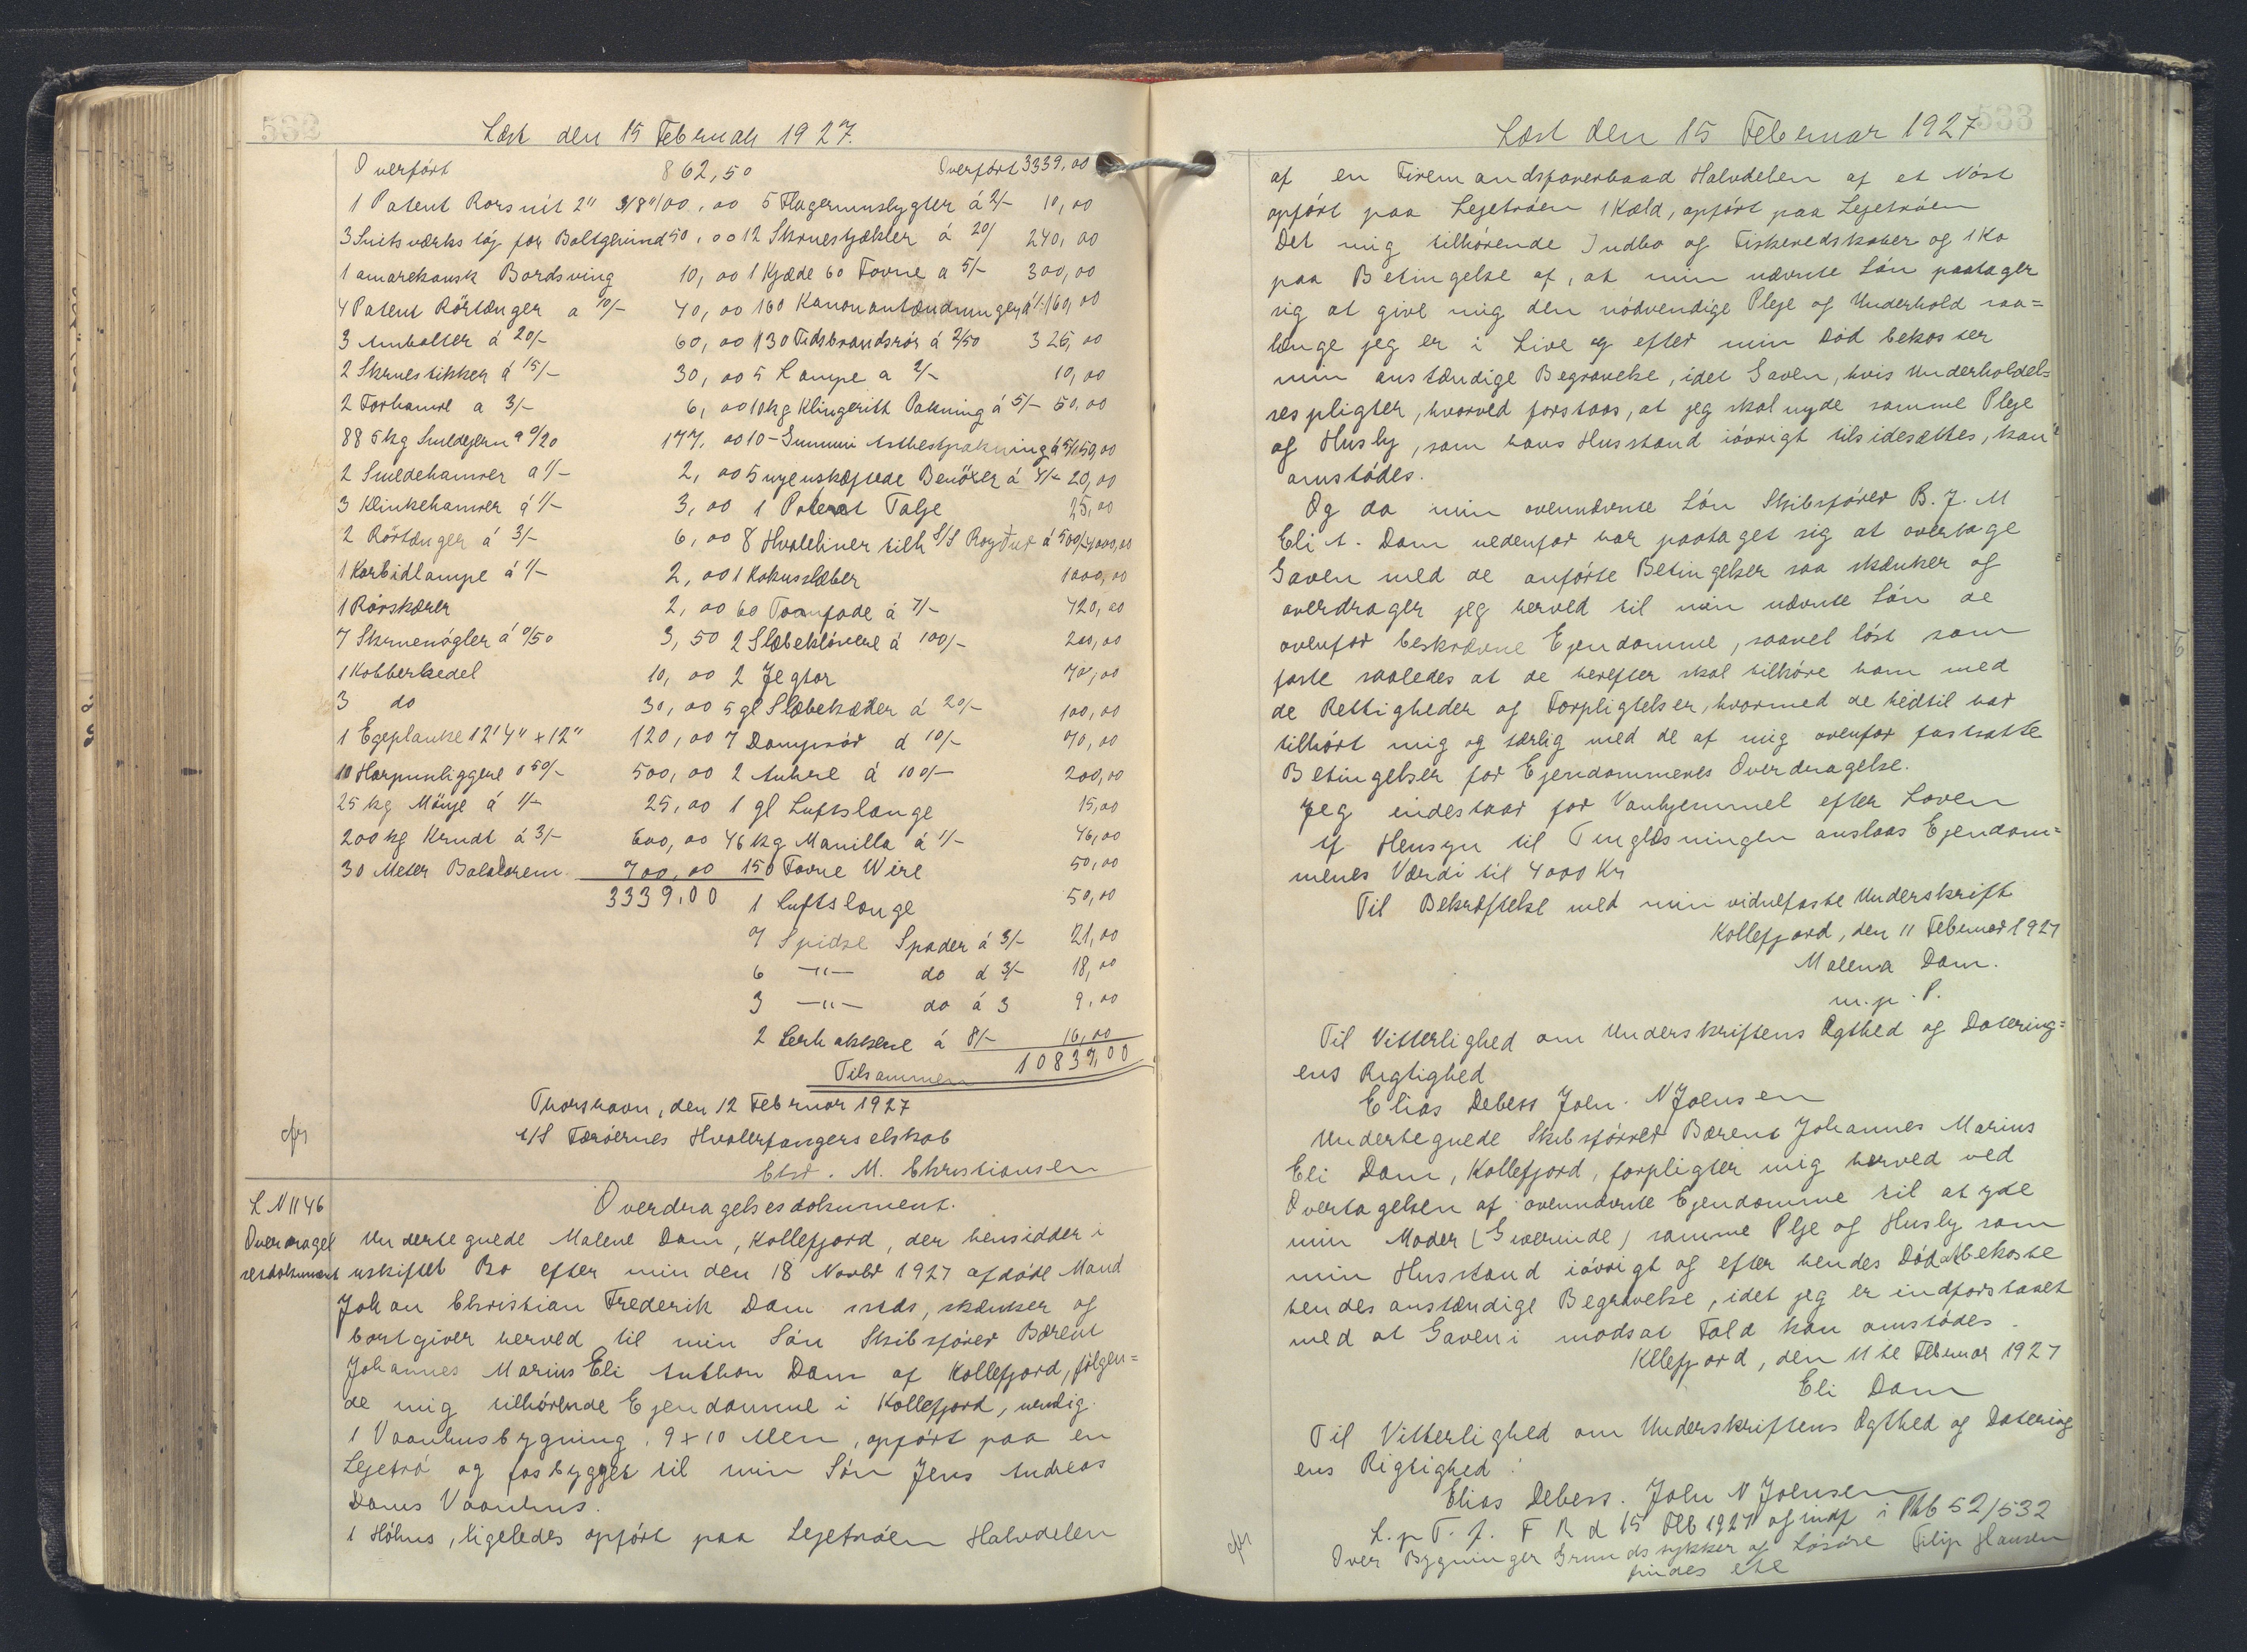 532
Læst den 15 Februar 1927.
Overført 862,50 Overført 3339,00
1 Patent Rørsnit 2" 3/8" 100,00 5 Flagermuslygter á 2/- 10,00
3 Snitsværktøj for Boltgevind 50,00 12 Skruestjækler á 20/ 240,00
1 amarekansk Bordsving 10,00 1 Kjæde 60 Favne a 5/- 300,00
4 Patent Rörtænger a 10/- 40,00 160 Kanonantændninger á 1. 160,00
3 Ambolter á 20/- 60,00 130 Tidsbrandsrör á 2/50 325,00
2 Skruestikker á 15/- 30,00 5 Lampe a 2/- 10,00
2 Forhamre a 3/- 6,00 10 kg Klingeritt Pakning á 5/- 50,00
885 kg Smedejern a 0/20 177,00 10 - Gummi Asbestpakning á 5/- 50,00
2 Smedehamrer a 1/- 2,00 5 nyenskæftede Benöxer á 4/- 20,00
3 Klinkehamrer á 1/- 3,00 1 Patent Talje 25,00
2 Rörtænger á 3/- 6,00 8 Hvalliner tilh S/S á 500/- 4000,00
1 Karbidlampe á 1/- 2,00 1 Kokusslæber 1000,00
1 Rörskærer 2,00 60 á 7/- 420,00
7 Skruenögler á 0/50 3,50 2 á 100/- 200,00
1 Kobberkedel 10,00 2 Jegtar 70,00
3 do 30,00 5 gl Slæbekæder á 20/- 100,00
1 Egeplanke 12' 4" x 12" 120,00 7 Damprör á 10/- 70,00
10 Harpunliggere á 50/- 500,00 2 Ankre á 100/- 200,00
25 kg Mönje á 1/- 25,00 1 gl Luftslange 15,00
200 kg Krudt á 3/- 600,00 46 kg Manilla á 1/- 46,00
30 Meter Balatarem 700,00 150 Favne Wire 50,00
3339,00 1 Luftslange 50,00
7 Spidse Spader á 3/- 21,00
6 -"- do á 3/- 18,00
3 -"- do á 3 9,00
2 Lerhakkere á 8/- 16,00
Tilsammen 10837,00
Thorshavn, den 12 Februar 1927
cfr A/S Færöernes Hvalerfangerselskab
M. Christiansen
L N 1146 Overdragelsesdokument.
Overdragel Undertegnede Malene Dam, Kollefjord, der hensidder i
sesdokument uskiftet Bo efter min den 18 Novbr 1927 afdöde Mand
Johan Christian Frederik Dam skænker og
bortgiver herved til min Sön Skibsförer Bærent
Johannes Marius Eli Anthon Dam af Kollefjord, fölgen=
de mig tilhörende Ejendomme i Kollefjord, nemlig.
1 Vaanhusbygning, 9 x 10 Alen, opfört paa en
Lejetrö og fasbygget til min Sön Jens Andreas
Dams Vaanhus.
1 Höhus, ligeledes opfört paa Lejetröen Halvdelen
533
Læst den 15 Februar 1927
af en Firemandsfarerbaad Halvdelen af et Nöst
opfört paa Lejetröen 1 Kæld, opfört paa Lejetröen
Det mig tilhörende Indbo og Fiskeredskaber og 1 Ko
paa Betingelse af, at min nævnte Sön paatager
sig at give mig den nödvendige Pleje og Underhold saa=
længe jeg er i Live og efter min Död bekoster
min anstændige Begravelse, idet Gaven, hvis Underholdel=
sespligter, hvorved forstaas, at jeg skal nyde samme Pleje
og Husly, som hans Husstand iövrigt tilsidesættes, kan
omstödes.
Og da min ovennævnte Sön Skibsförer B. J. M
Eli A. Dam nedenfor har paataget sig at overtage
Gaven med de anförte Betingelser saa skænker og
overdrager jeg herved til min nævnte Sön de
ovenfor beskrævne Ejendomme, saavel löst som
faste saaledes at de herefter skal tilhöre ham med
de Rettigheder og Forpligtelser, hvormed de hidtil har
tilhört mig og særlig med de af mig ovenfor fastsatte
Betingelser for Ejendommenes Overdragelse.
Jeg indestaar for Vanhjemmel efter Loven
Af Hensyn til Tinglæsningen anslaas Ejendom=
menes Værdi til 4000 Kr
Til Bekræftelse med min vidnefaste Underskrift
Kollefjord, den 11 Februar 1927
Malena Dam.
m. p. P.
Til Vitterlighed om Underskriftens Ægthed og Datering=
ens Rigtighed
Elias Debess John. N Joensen
Undertegnede Skibsförer Bærent Johannes Marius
Eli Dam, Kollefjord, forpligter mig herved ved
Overtagelsen af ovennævnte Ejendomme til at yde
min Moder (Giverinde) samme Pleje og Husly som
min Husstand iövrigt og efter hendes Död at bekoste
hendes anstændige Begravelse, idet jeg er indforstaaet
med at Gaven i modsat Fald kan omstödes.
Kllefjord, den 11 te Februar 1927
Eli Dam
Til Vitterlighed om Underskriftens Ægthed og Datering
ens Rigtighed:
Elias Debess. John N Joensen
L. p T. f. F R d 15 Feb 1927 og indf i Ptb 52/532
cfr Over Bygninger Grundstykker og Lösöre Filip Hansen
findes ete